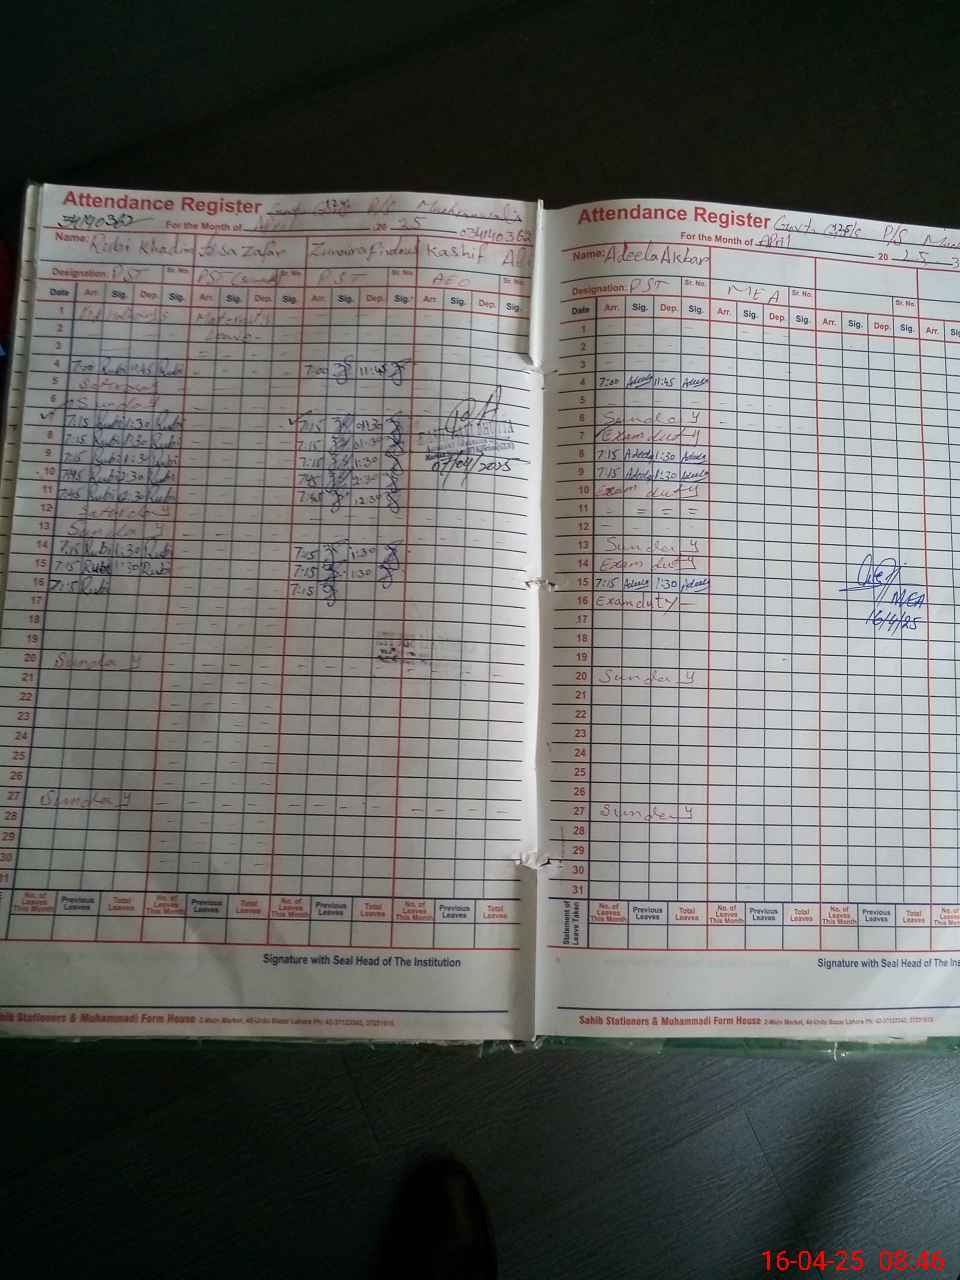 Attendance Register Govt P/S
34140362 For the Month of April 20 25 034140362
Name: Rubi Khadim Zafar Kashif
Designation: PST Sr. No. PST Sr. No. PST Sr. No. AEO Sr. No.
Date Arr. Sig. Dep. Sig. Arr. Sig. Dep. Sig. Arr. Sig. Dep. Sig. Arr. Sig. Dep. Sig.
1
2 Leave
3
4 7:00 Rubi 11:45 Rubi 7:00 11:45
5 Saturday
6 Sunday
7 7:15 Rubi 1:30 Rubi 7:15 01:30
8 7:15 Rubi 1:30 Rubi 7:15 01:30
9 7:15 Rubi 1:30 Rubi 7:15 1:30
10 7:45 Rubi 12:30 Rubi 7:45 12:30
07/04/2025
11 7:45 Rubi 12:30 Rubi 7:45 12:30
12 Saturday
13 Sunday
14 7:15 Rubi 1:30 Rubi 7:15 1:30
15 7:15 Rubi 1:30 Rubi 7:15 1:30
16 7:15 Rubi 7:15
17
18
19
20 Sunday
21
22
23
24
25
26
27 Sunday
28
29
30
31
No. of Leaves This Month Previous Leaves Total Leaves No. of Leaves This Month Previous Leaves Total Leaves No. of Leaves This Month Previous Leaves Total Leaves No. of Leaves This Month Previous Leaves Total Leaves
Signature with Seal Head of The Institution
Sahib Stationers & Muhammadi Form House 2-Main Market, 40-Urdu Bazar Lahore
Attendance Register Govt P/S
For the Month of April 20 25
Name: Adeela Akhtar
Designation: PST Sr. No. MEA Sr. No. Sr. No.
Date Arr. Sig. Dep. Sig. Arr. Sig. Dep. Sig. Arr. Sig. Dep. Sig. Arr.
1
2
3
4 7:00 Adeela 11:45 Adeela
5
6 Sunday
7 Exam duty
8 7:15 Adeela 1:30 Adeela
9 7:15 Adeela 1:30 Adeela
10 Exam duty
11
12
13 Sunday
14 Exam duty
15 7:15 Adeela 1:30 Adeela
16 Exam duty
MEA
16/4/25
17
18
19
20 Sunday
21
22
23
24
25
26
27 Sunday
28
29
30
31
Statement of Leave Taken No. of Leaves This Month Previous Leaves Total Leaves No. of Leaves This Month Previous Leaves Total Leaves No. of Leaves This Month Previous Leaves Total Leaves
Signature with Seal Head of The
Sahib Stationers & Muhammadi Form House 2-Main Market, 40-Urdu Bazar Lahore
16-04-25 08:46